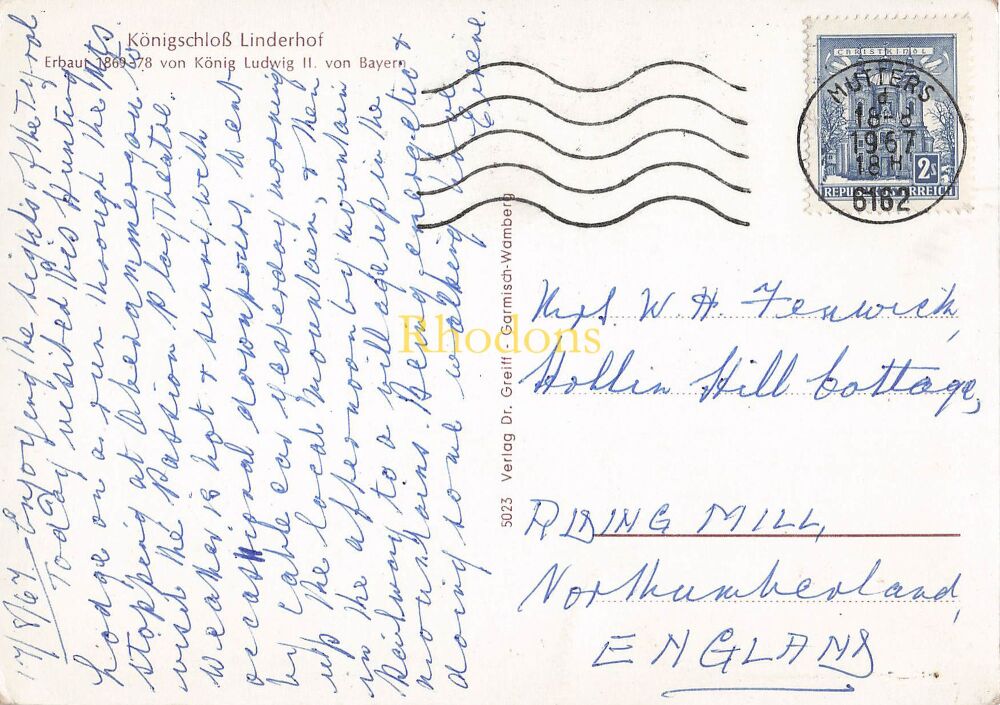 Königschloß Linderhof
Erbaut 1869-78 von König Ludwig II. von Bayern
17/8/67 Enjoying the sights of the Tyrol
Today visited this Hunting
Lodge on a run through the Mts
stopping at Oberammergau to
visit the Passion Play Theatre.
Weather is hot & sunny with
occasional downpours. Went
by cable car yesterday morning
up the local mountain, & then
in the afternoon by mountain
railway to a village up in the
mountains. Being energetic &
doing some walking here
Irene.
Verlag Dr. Greiff Garmisch-Wamberg
5023
CHRISTKINDL
2s
REPUBLIK ÖSTERREICH
MUTTERS
d
18-8
1967
18H
6162
Mrs W. H. Fenwick,
Hollin Hill Cottage,
RIDING MILL,
Northumberland,
ENGLAND
Rhodons